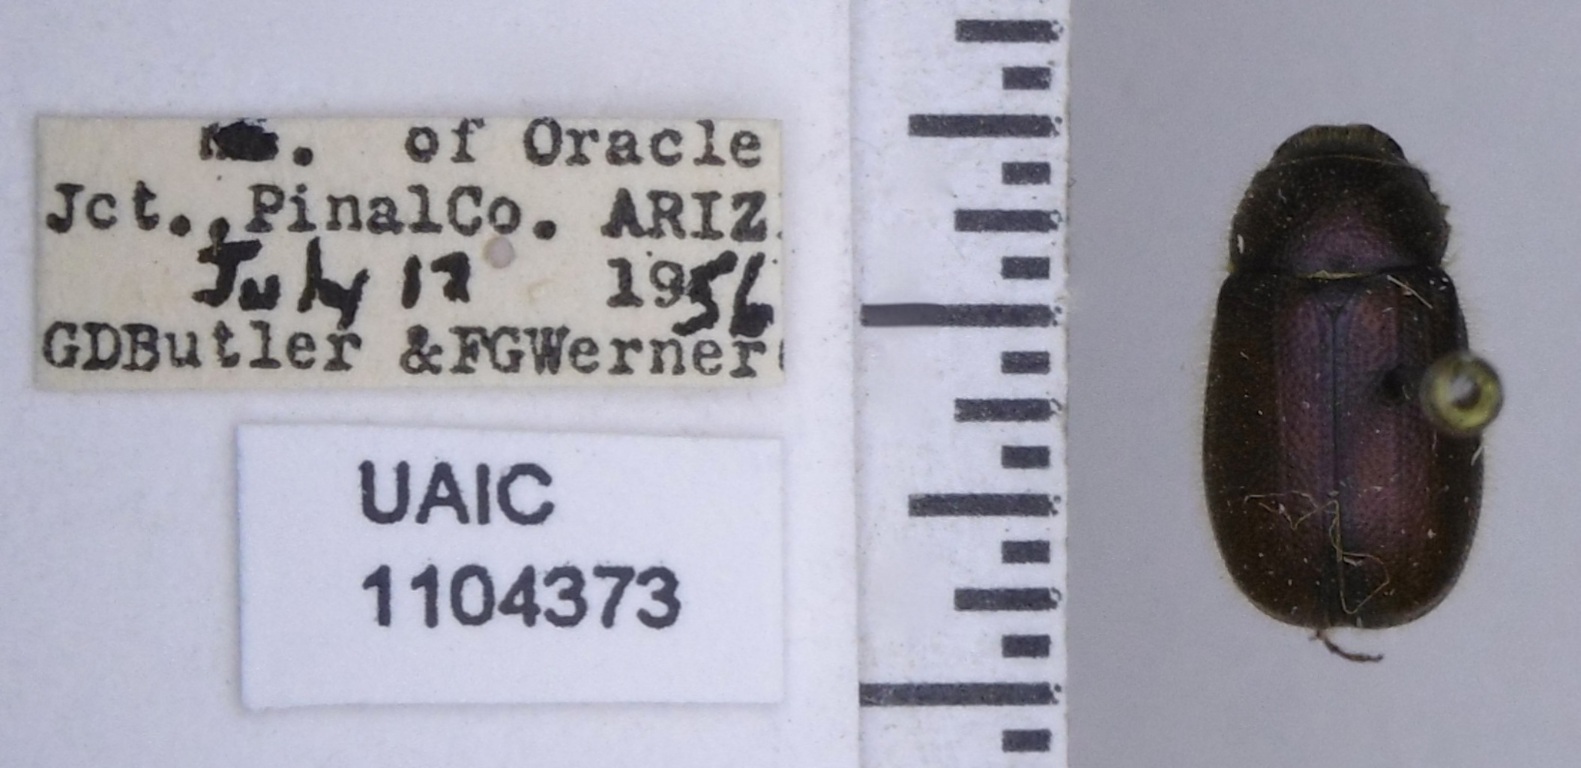 of Oracle
Jct., PinalCo. ARIZ.
July 17 1956
GDButler &FGWerner
UAIC
1104373